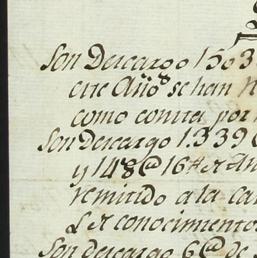 Son Descargo 1503
este Año se han
como consta por
Son Descargo 1.339@
y 148@16 tt de
remitido a la ca
de conocimiento
Son descargo 6@ de